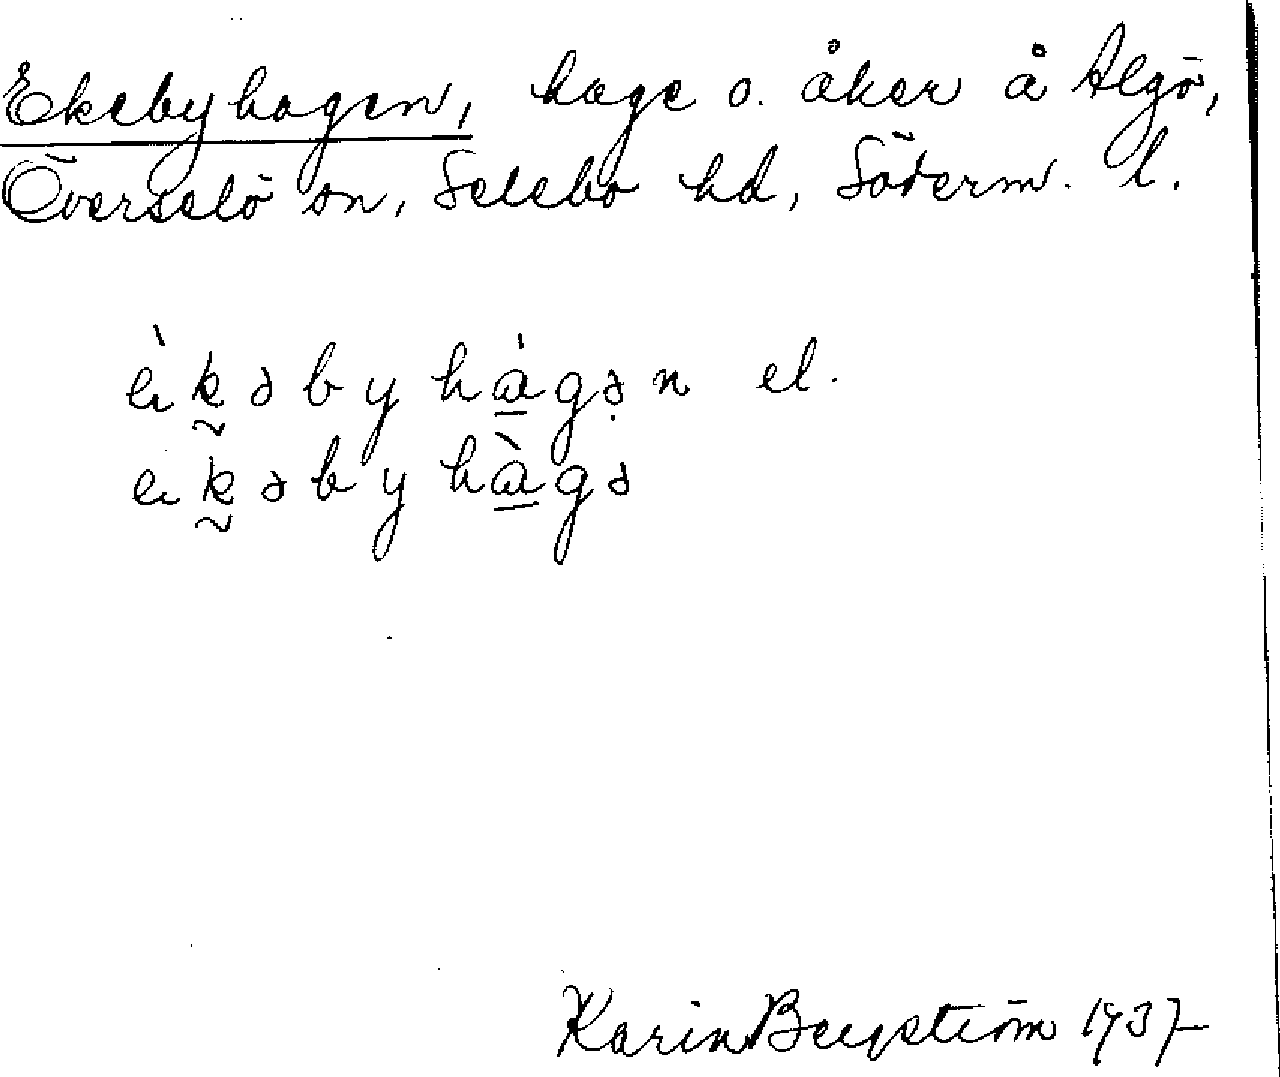 Ekebyhagen, hage o. åker å Algö,
Överselö sn, Selebo hd, Söderm. l.
èkəbyhàgən el.
ekəbyhàgə
Karin Bergström 1937